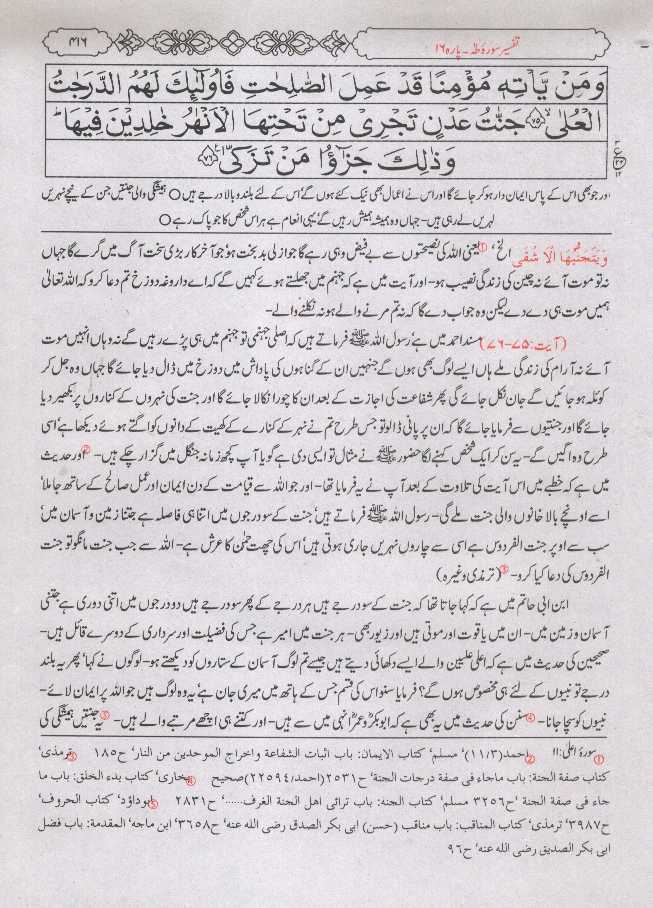 تفسیر سورۂ طٰہٰ۔ پارہ ۱۶
۴۱۶
وَمَنْ يَّاْتِهٖ مُؤْمِنًا قَدْ عَمِلَ الصّٰلِحٰتِ فَاُولٰٓئِكَ لَهُمُ الدَّرَجٰتُ
الْعُلٰى ۙ۷۵ جَنّٰتُ عَدْنٍ تَجْرِىْ مِنْ تَحْتِهَا الْاَنْهٰرُ خٰلِدِيْنَ فِيْهَا ؕ
وَذٰلِكَ جَزٰٓؤُا مَنْ تَزَكّٰى ۷۶
اور جو بھی اس کے پاس ایمان دار ہو کر جائے گا اور اس نے اعمال بھی نیک کئے ہوں گے' اس کے لئے بلند و بالا درجے ہیں ○ ہمیشگی والی جنتیں جن کے نیچے نہریں
لہریں لے رہی ہیں۔ جہاں وہ ہمیشہ ہمیش رہیں گے' یہی انعام ہے ہر اس شخص کا جو پاک رہے ○
وَيَتَجَنَّبُهَا الْاَشْقَى الخ' ① یعنی اللہ کی نصیحتوں سے بے فیض وہی رہے گا جو ازلی بدبخت ہو' جو آخرکار بڑی سخت آگ میں گرے گا جہاں
نہ تو موت آئے نہ چین کی زندگی نصیب ہو۔ اور آیت میں ہے کہ جہنم میں جھلستے ہوئے کہیں گے کہ اے داروغہ دوزخ تم دعا کرو کہ اللہ تعالیٰ
ہمیں موت ہی دے دے لیکن وہ جواب دے گا کہ نہ تم مرنے والے ہو نہ نکلنے والے۔
(آیت:۷۵-۷۶) مسند احمد میں ہے' رسول اللہ ﷺ فرماتے ہیں کہ اصلی جہنمی تو جہنم میں ہی پڑے رہیں گے نہ وہاں انہیں موت
آئے نہ آرام کی زندگی ملے ہاں ایسے لوگ بھی ہوں گے جنہیں ان کے گناہوں کی پاداش میں دوزخ میں ڈال دیا جائے گا جہاں وہ جل کر
کوئلہ ہو جائیں گے جان نکل جائے گی پھر شفاعت کی اجازت کے بعد ان کا چورا نکالا جائے گا اور جنت کی نہروں کے کناروں پر بکھیر دیا
جائے گا اور جنتیوں سے فرمایا جائے گا کہ ان پر پانی ڈالو تو جس طرح تم نے نہر کے کنارے کے کھیت کے دانوں کو اگتے ہوئے دیکھا ہے' اسی
طرح وہ اگیں گے۔ یہ سن کر ایک شخص کہنے لگا حضور ﷺ نے مثال تو ایسی دی ہے گویا آپ کچھ زمانہ جنگل میں گزار چکے ہیں۔ ② اور حدیث
میں ہے کہ خطبے میں اس آیت کی تلاوت کے بعد آپ نے یہ فرمایا تھا۔ اور جو اللہ سے قیامت کے دن ایمان اور عمل صالح کے ساتھ جا ملا'
اسے اونچے بالا خانوں والی جنت ملے گی۔ رسول اللہ ﷺ فرماتے ہیں' جنت کے سو درجوں میں اتنا ہی فاصلہ ہے جتنا زمین و آسمان میں'
سب سے اوپر جنت الفردوس ہے اسی سے چاروں نہریں جاری ہوتی ہیں' اس کی چھت رحمٰن کا عرش ہے۔ اللہ سے جب جنت مانگو تو جنت
الفردوس کی دعا کیا کرو۔ ③ (ترمذی وغیرہ)
ابن ابی حاتم میں ہے کہ کہا جاتا تھا کہ جنت کے سو درجے ہیں ہر درجے کے پھر سو درجے ہیں دو درجوں میں اتنی دوری ہے جتنی
آسمان و زمین میں۔ ان میں یاقوت اور موتی ہیں اور زیور بھی۔ ہر جنت میں امیر ہے جس کی فضیلت اور سرداری کے دوسرے قائل ہیں۔
صحیحین کی حدیث میں ہے کہ اعلیٰ علیین والے ایسے دکھائی دیتے ہیں جیسے تم لوگ آسمان کے ستاروں کو دیکھتے ہو۔ لوگوں نے کہا' پھر یہ بلند
درجے تو نبیوں کے لئے ہی مخصوص ہوں گے؟ فرمایا سنو اس کی قسم جس کے ہاتھ میں میری جان ہے' یہ وہ لوگ ہیں جو اللہ پر ایمان لائے۔
نبیوں کو سچا جانا۔ ④ سنن کی حدیث میں یہ بھی ہے کہ ابوبکرؓ و عمرؓ انہی میں سے ہیں۔ اور کتنے ہی اچھے مرتبے والے ہیں۔ ⑤ یہ جنتیں ہمیشگی کی
① سورۂ اعلیٰ:۱۱ ② احمد(۱۱/۳)' مسلم' کتاب الایمان: باب اثبات الشفاعة واخراج الموحدین من النار' ح۱۸۵ ③ ترمذی'
کتاب صفة الجنة: باب ماجاء فی صفة درجات الجنة' ح۲۵۳۱(احمد/۲۲۵۹۴)صحیح ④ بخاری' کتاب بدء الخلق: باب ما
جاء فی صفة الجنة' ح۳۲۵۶ مسلم' کتاب الجنة: باب ترائی اهل الجنة الغرف......' ح۲۸۳۱ ⑤ ابوداؤد' کتاب الحروف'
ح۳۹۸۷' ترمذی' کتاب المناقب: باب مناقب (حسن) ابی بکر الصدق رضی الله عنه' ح۳۶۵۸' ابن ماجه' المقدمة: باب فضل
ابی بکر الصدیق رضی الله عنه' ح۹۶